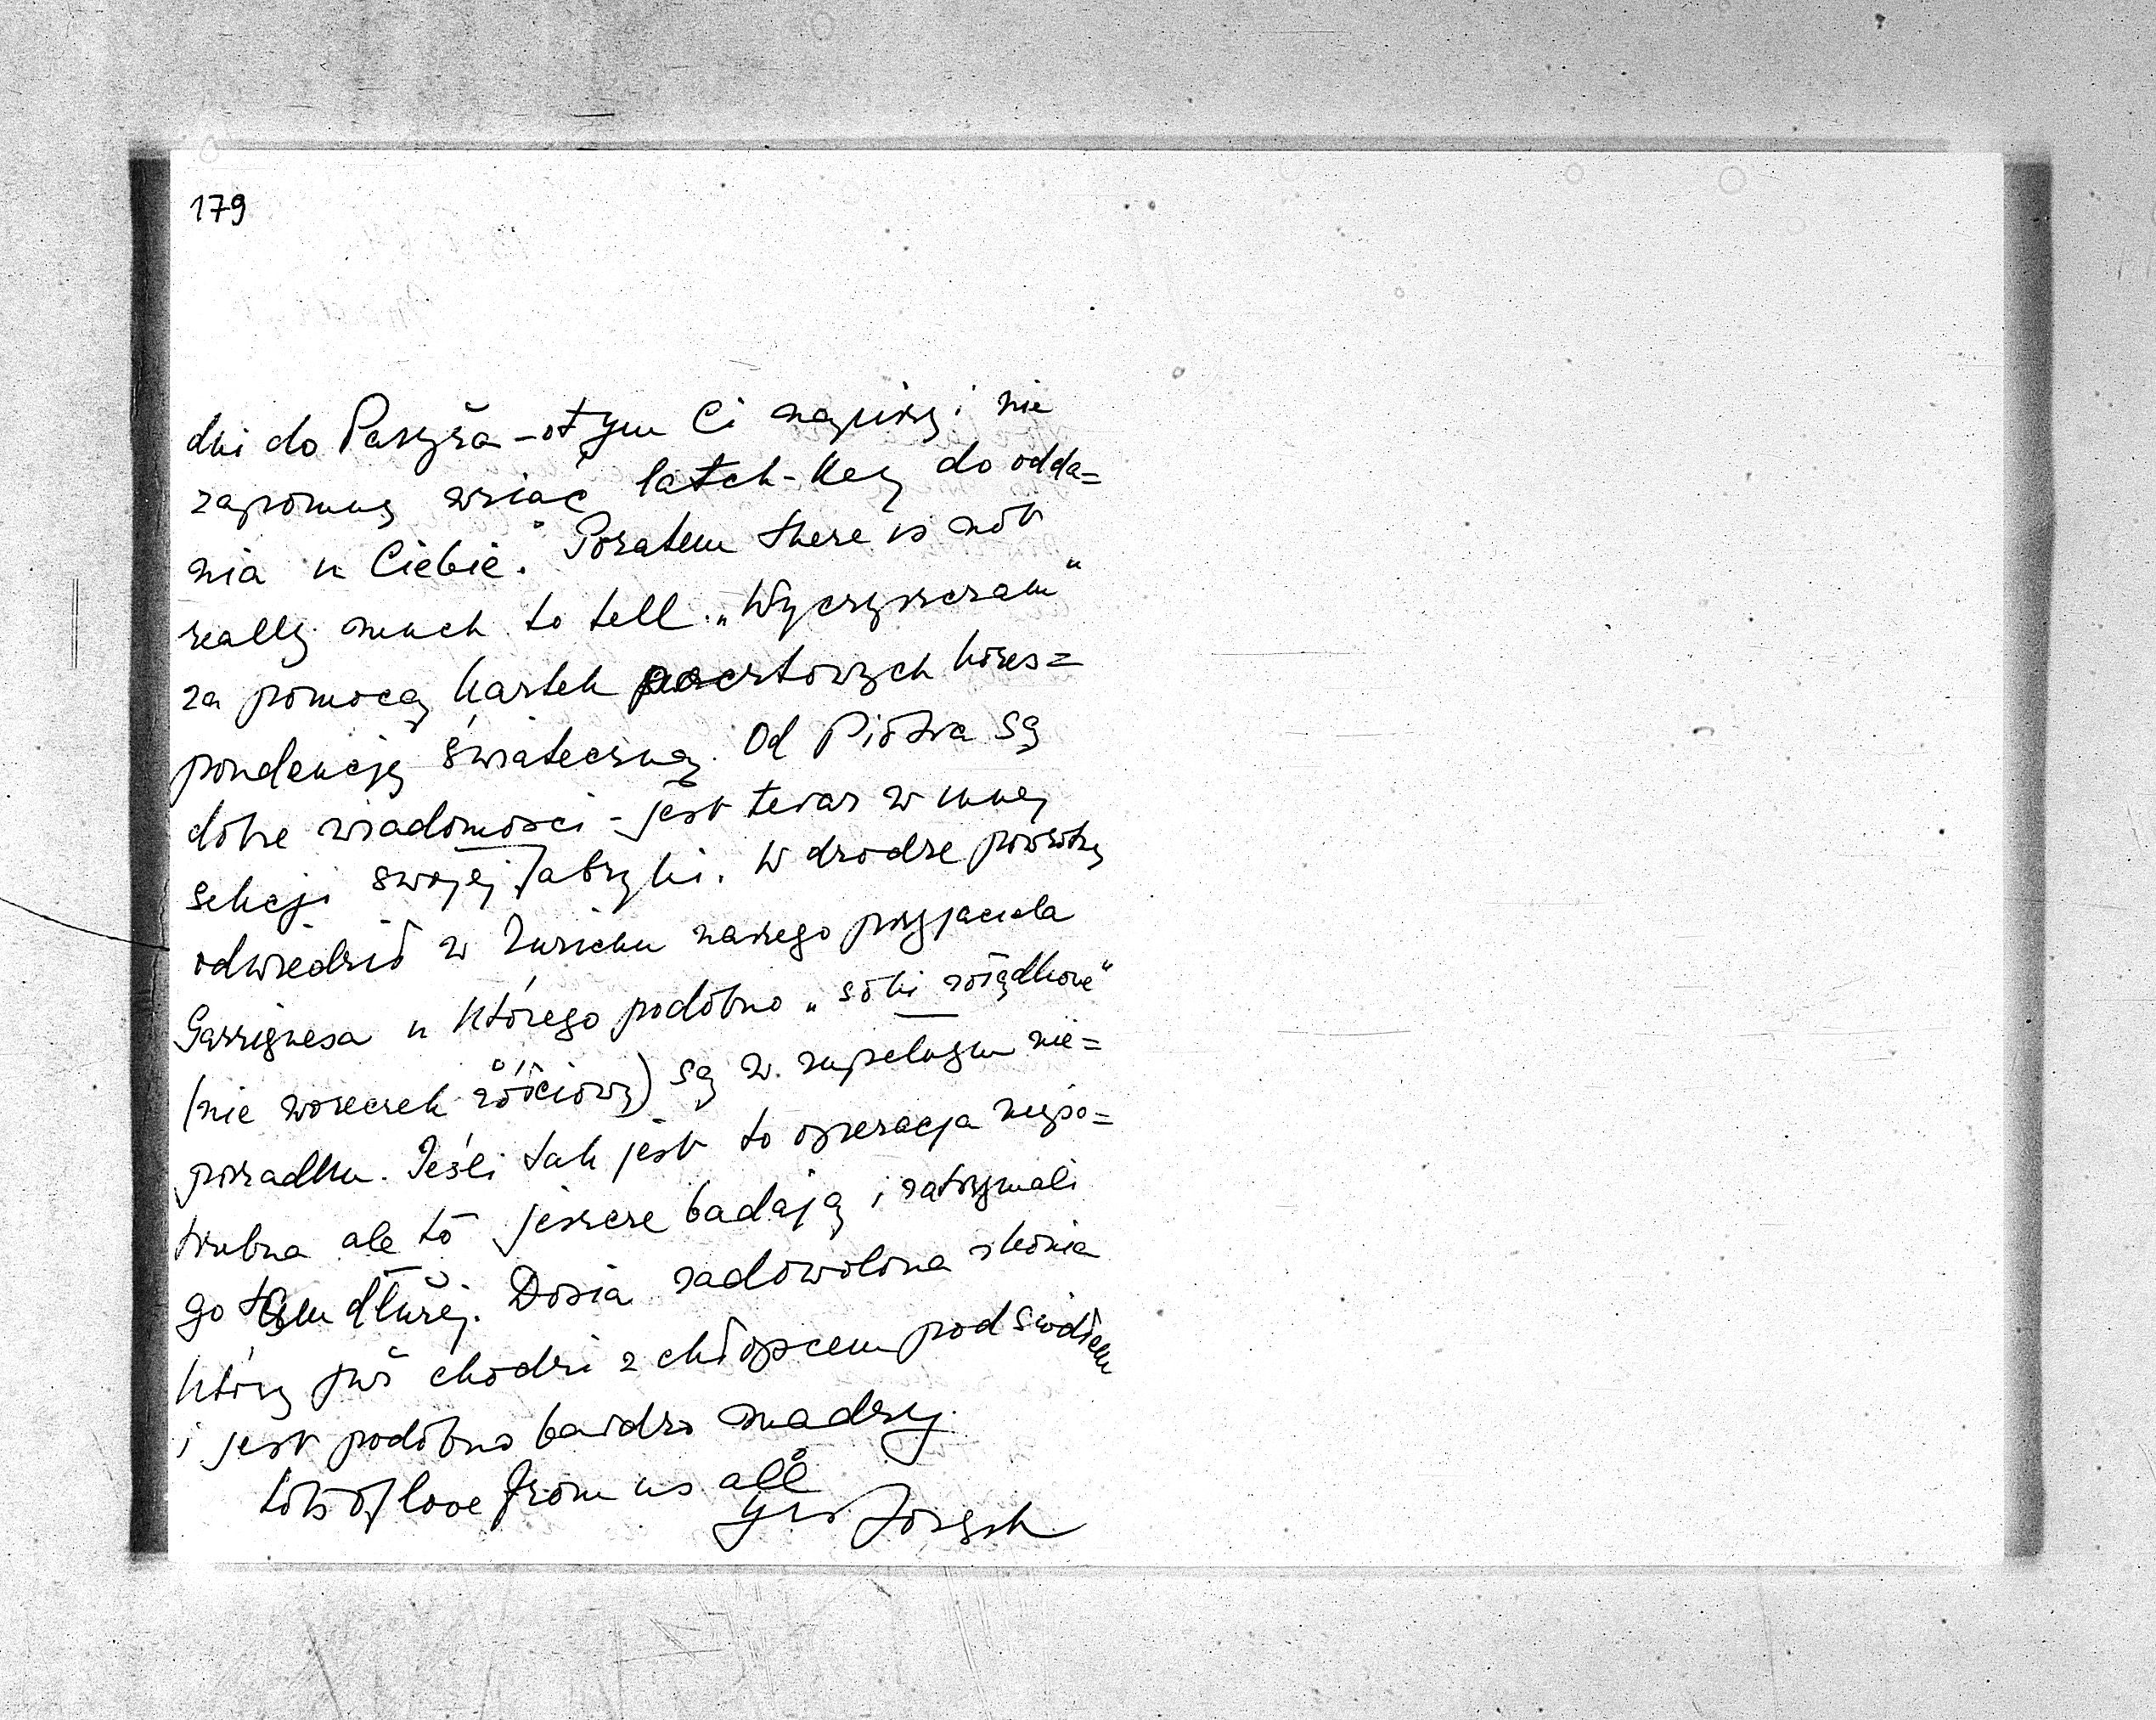 179
dni do Paryża - o tym Ci napiszę i nie
zapomnę wziąć latch-key do odda=
nia u Ciebie. Pozatem there is not
really much to tell. „Wyczyszczam"
za pomocą kartek pocztowych kores=
pondencję świateczną. Od Piotra są
dobre wiadomości - jest teraz w innej
sekcji swojej fabryki. W drodze powrotnej
odwiedził w Zurichu naszego przyjaciela
Garriguesa u którego podobno „soki żołądkowe"
(nie woreczek żółciowy) są w. zupełnym nie=
porzadku. Jeśli tak jest to operacja niepo=
trzebna ale to jeszcze badają i zatrzymali
go tam dłużej. Dosia zadowolona z konia
który już chodzi z chłopcem pod siodłem
i jest podobno bardzo mądry.
Lots of love from us all
Józef